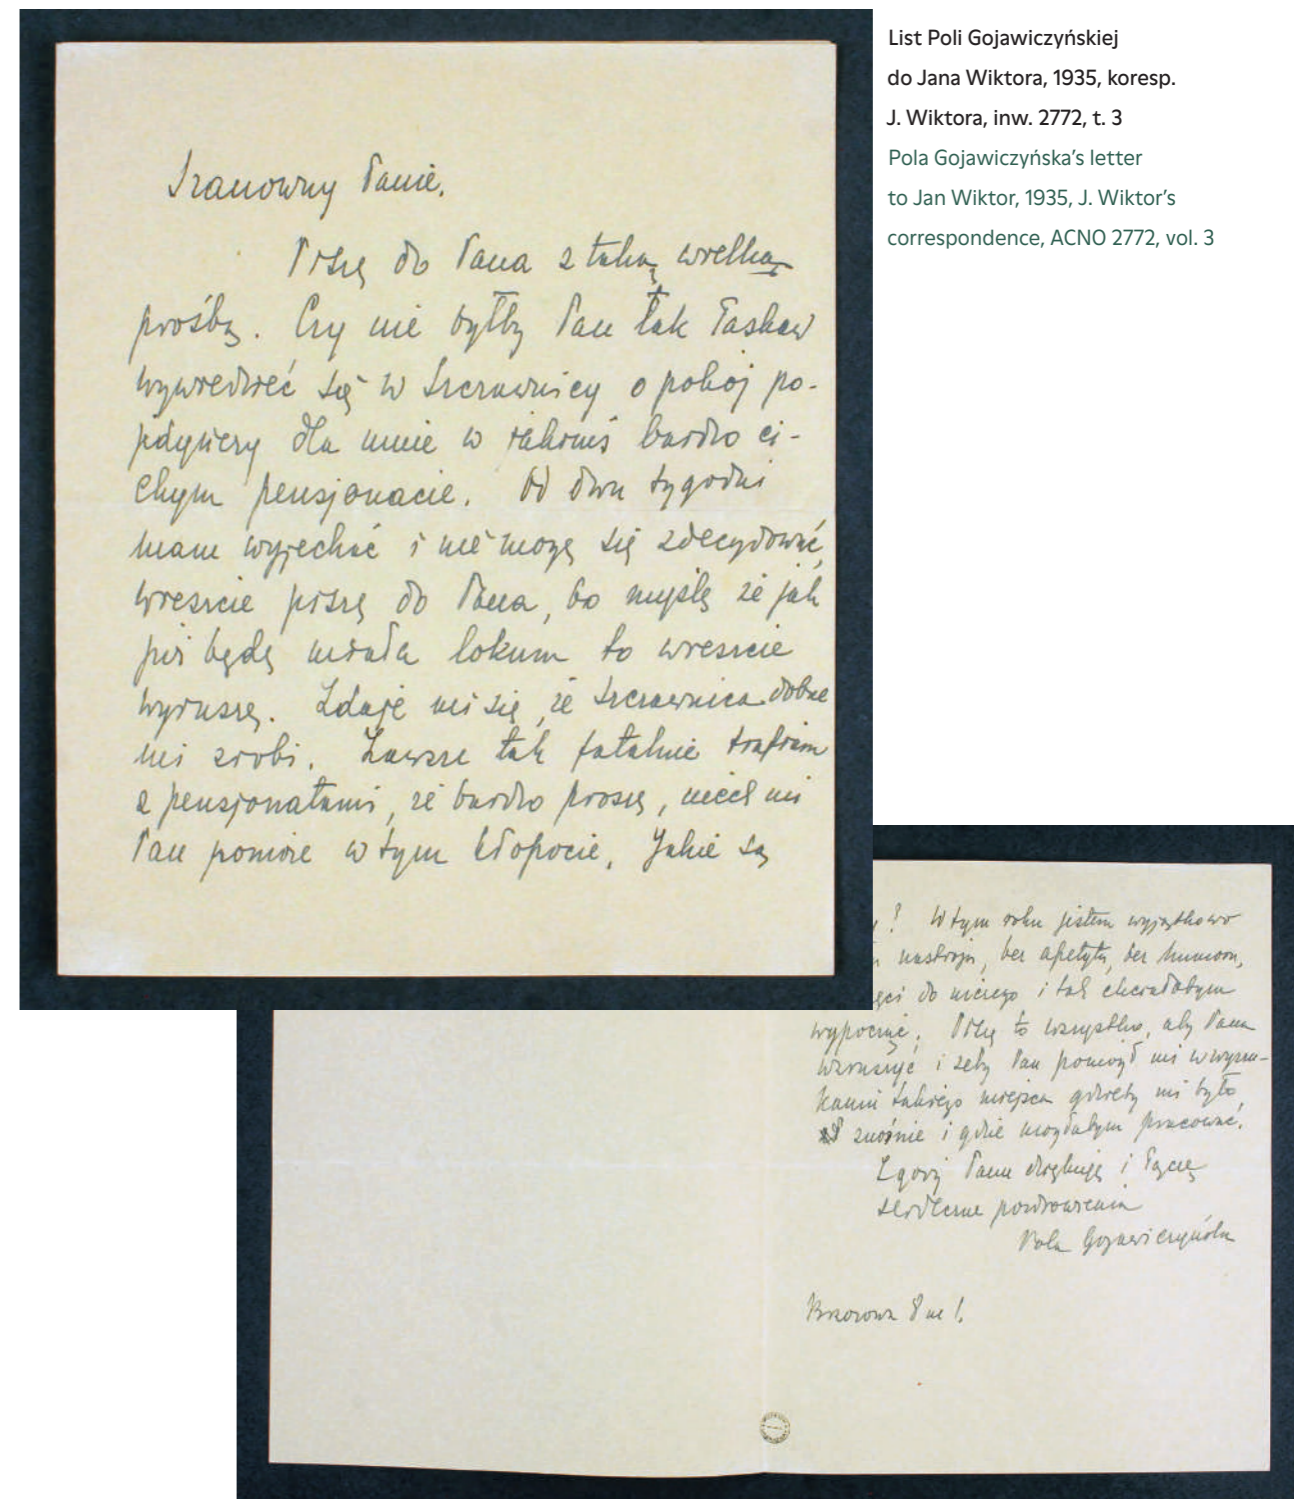 List Poli Gojawiczyńskiej
do Jana Wiktora, 1935, koresp.
J. Wiktora, inw. 2772, t. 3
Pola Gojawiczyńska’s letter
to Jan Wiktor, 1935, J. Wiktor’s
correspondence, ACNO 2772, vol. 3
Szanowny Panie.
Piszę do Pana z taką wielką
prośbą. Czy nie byłby Pan tak łaskaw
wywiedzieć się w Szczawnicy o pokój po-
jedyńczy dla mnie w jakimś bardzo ci-
chym pensjonacie. Od dwu tygodni
mam wyjechać i nie mogę się zdecydować,
wreszcie piszę do Pana, bo myślę że jak
już będę miała lokum to wreszcie
wyruszę. Zdaje mi się, że Szczawnica dobrze
mi zrobi. Zawsze tak fatalnie trafiam
z pensjonatami, że bardzo proszę, niech mi
Pan pomoże w tym kłopocie. Jakie są
? W tym roku jestem wyjątkowo
nastroju, bez apetytu, bez humoru,
do niczego i tak chciałabym
wypocząć. Piszę to wszystko, aby Pana
wzruszyć i żeby Pan pomógł mi w wyszu-
kaniu takiego miejsca gdzieby mi było
znośnie i gdzie mogłabym pracować.
Z góry Panu dziękuję i łączę
serdeczne pozdrowienia
Pola Gojawiczyńska
Brzozowa 8 m 1.